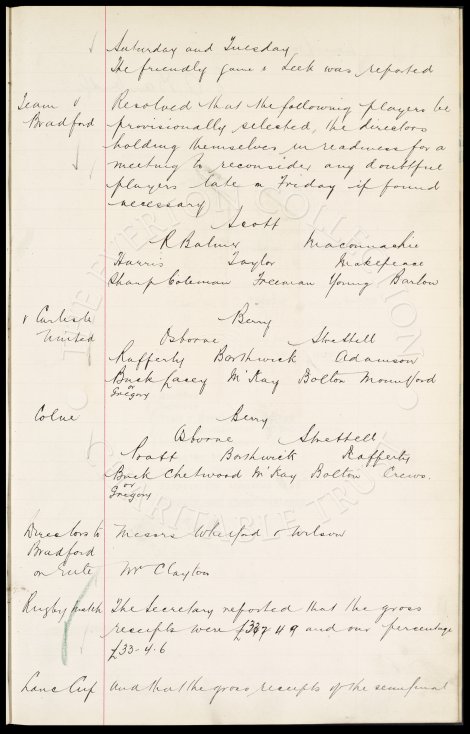 Saturday and Tuesday
The friendly game v Leek was reported
Team v
Bradford
Resolved that the following players be
provisionally selected, the directors
holding themselves in readiness for a
meeting to reconsider any doubtful
players late on Friday if found
necessary
Scott
R Balmer Maconnachie
Harris Taylor Makepeace
Sharp Coleman Freeman Young Barlow
v Carlisle
United
Berry
Osborne Strettell
Rafferty Borthwick Adamson
Buck Lacey McKay Bolton Mountford
or
Gregory
Colne
Berry
Osborne Strettell
Pratt Borthwick Rafferty
Buck Chetwood McKay Bolton Crews.
or
Gregory
Directors to
Bradford
Messrs Whitford & Wilson
on Ette
Mr Clayton
Rugby match
The Secretary reported that the gross
receipts were £337 4 9 and our percentage
£33-4-6
Lanc Cup
and that the gross receipts of the semifinal
THE EVERTON COLLECTION
CHARITABLE TRUST